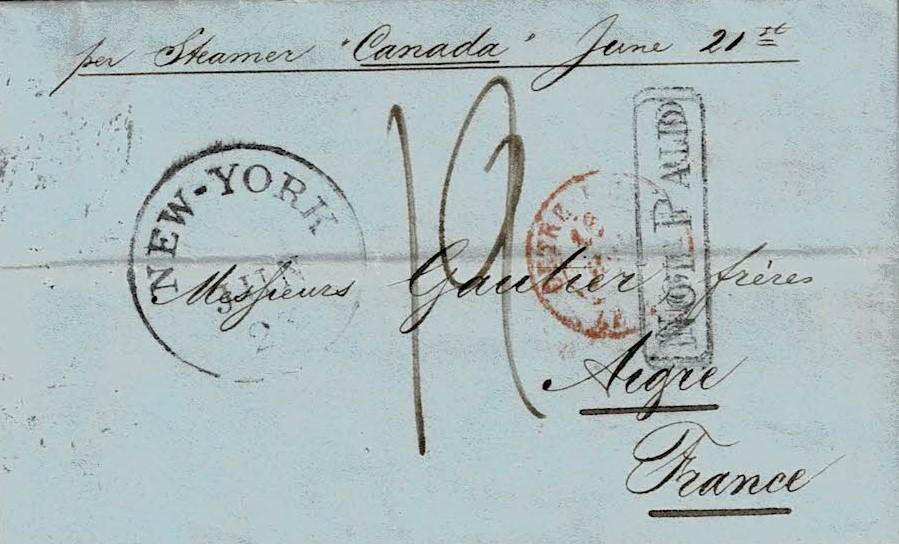 per Steamer "Canada" June 21st
NEW-YORK
JUN
NOT PAID
Messieurs Gautier frères
Aigre
France